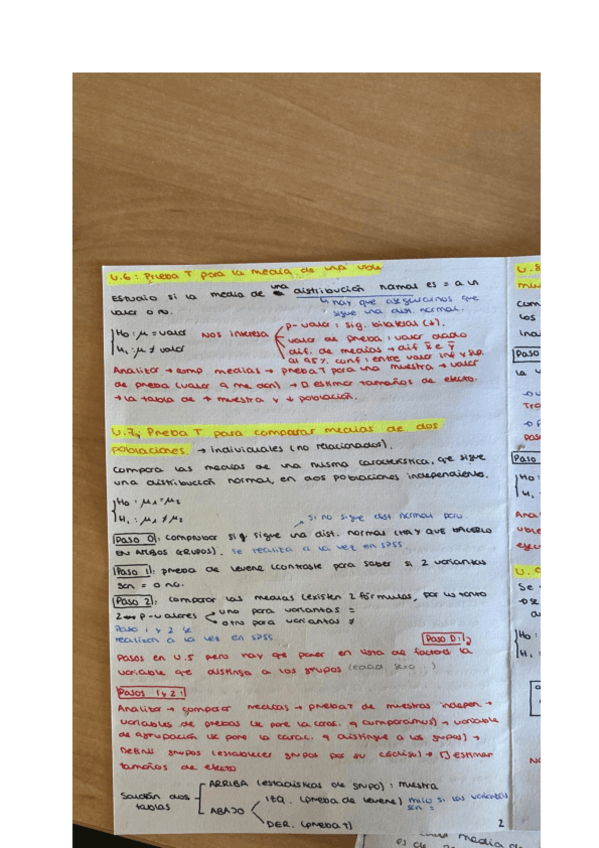 U.6: Prueba T para la media de una vble
Estudio si la media de una distribución normal es = a un
valor o no.
↳ hay que asegurarnos que
sigue una dist. normal.
H0: μ = valor
H1: μ ≠ valor
Nos interesa
p-valor: sig. bilateral
valor de prueba: valor dado
dif. de medias → dif x̄ e ȳ
al 95% conf: entre valor inf y sup.
Analizar → comp. medias → prueba T para una muestra → valor
de prueba (valor q me den) → □ Estimar tamaños de efecto.
→ la tabla de ↑ muestra y ↓ población.
U.7, Prueba T para comparar medias de dos
poblaciones. → individuales (no relacionados).
Compara las medias de una misma característica, qe sigue
una distribución normal, en dos poblaciones independiente.
H0: μ1 = μ2
H1: μ1 ≠ μ2
si no sigue dist normal
Paso 0: comprobar si sigue una dist. normal (HAY QUE HACERLO
EN AMBOS GRUPOS). se realiza a la vez en SPSS
Paso 1: prueba de Levene (contraste para saber si 2 varianzas
son = o no.
Paso 2: comparar las medias (existen 2 fórmulas, por lo tanto
2 p-valores
uno para varianzas =
otro para varianzas ≠
Paso 1 y 2 se
realizan a la vez en SPSS.
Paso 0:
Pasos en U.5 pero hay qe poner en lista de factores la
variable qe distinga a los grupos
Pasos 1 y 2:
Analizar → comparar medias → prueba T de muestras indepen. →
variables de prueba (se pone la carac. q comparamos) → variable
de agrupación (se pone la carac. q distingue a los grupos) →
Definir grupos (establecer grupos por su código) → □ Estimar
tamaños de efecto
Saldrán dos
tablas
ARRIBA (estadísticas de grupo): muestra
ABAJO
IZQ. (prueba de Levene) miro si las varianzas
son =
DER. (prueba T)
2
U.8
Paso
Paso
H0:
H1:
U.9
Se
H0:
H1:
media de